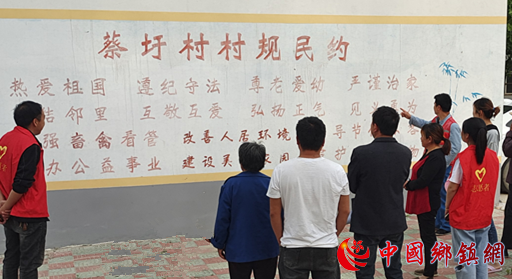 蔡圩村村规民约
热爱祖国 遵纪守法 尊老爱幼 严谨治家
结邻里 互敬互爱 弘扬正气 见 为
强畜禽看管 改善人居环境 导节
办公益事业 建设美 家园 护
中國鄉鎮網